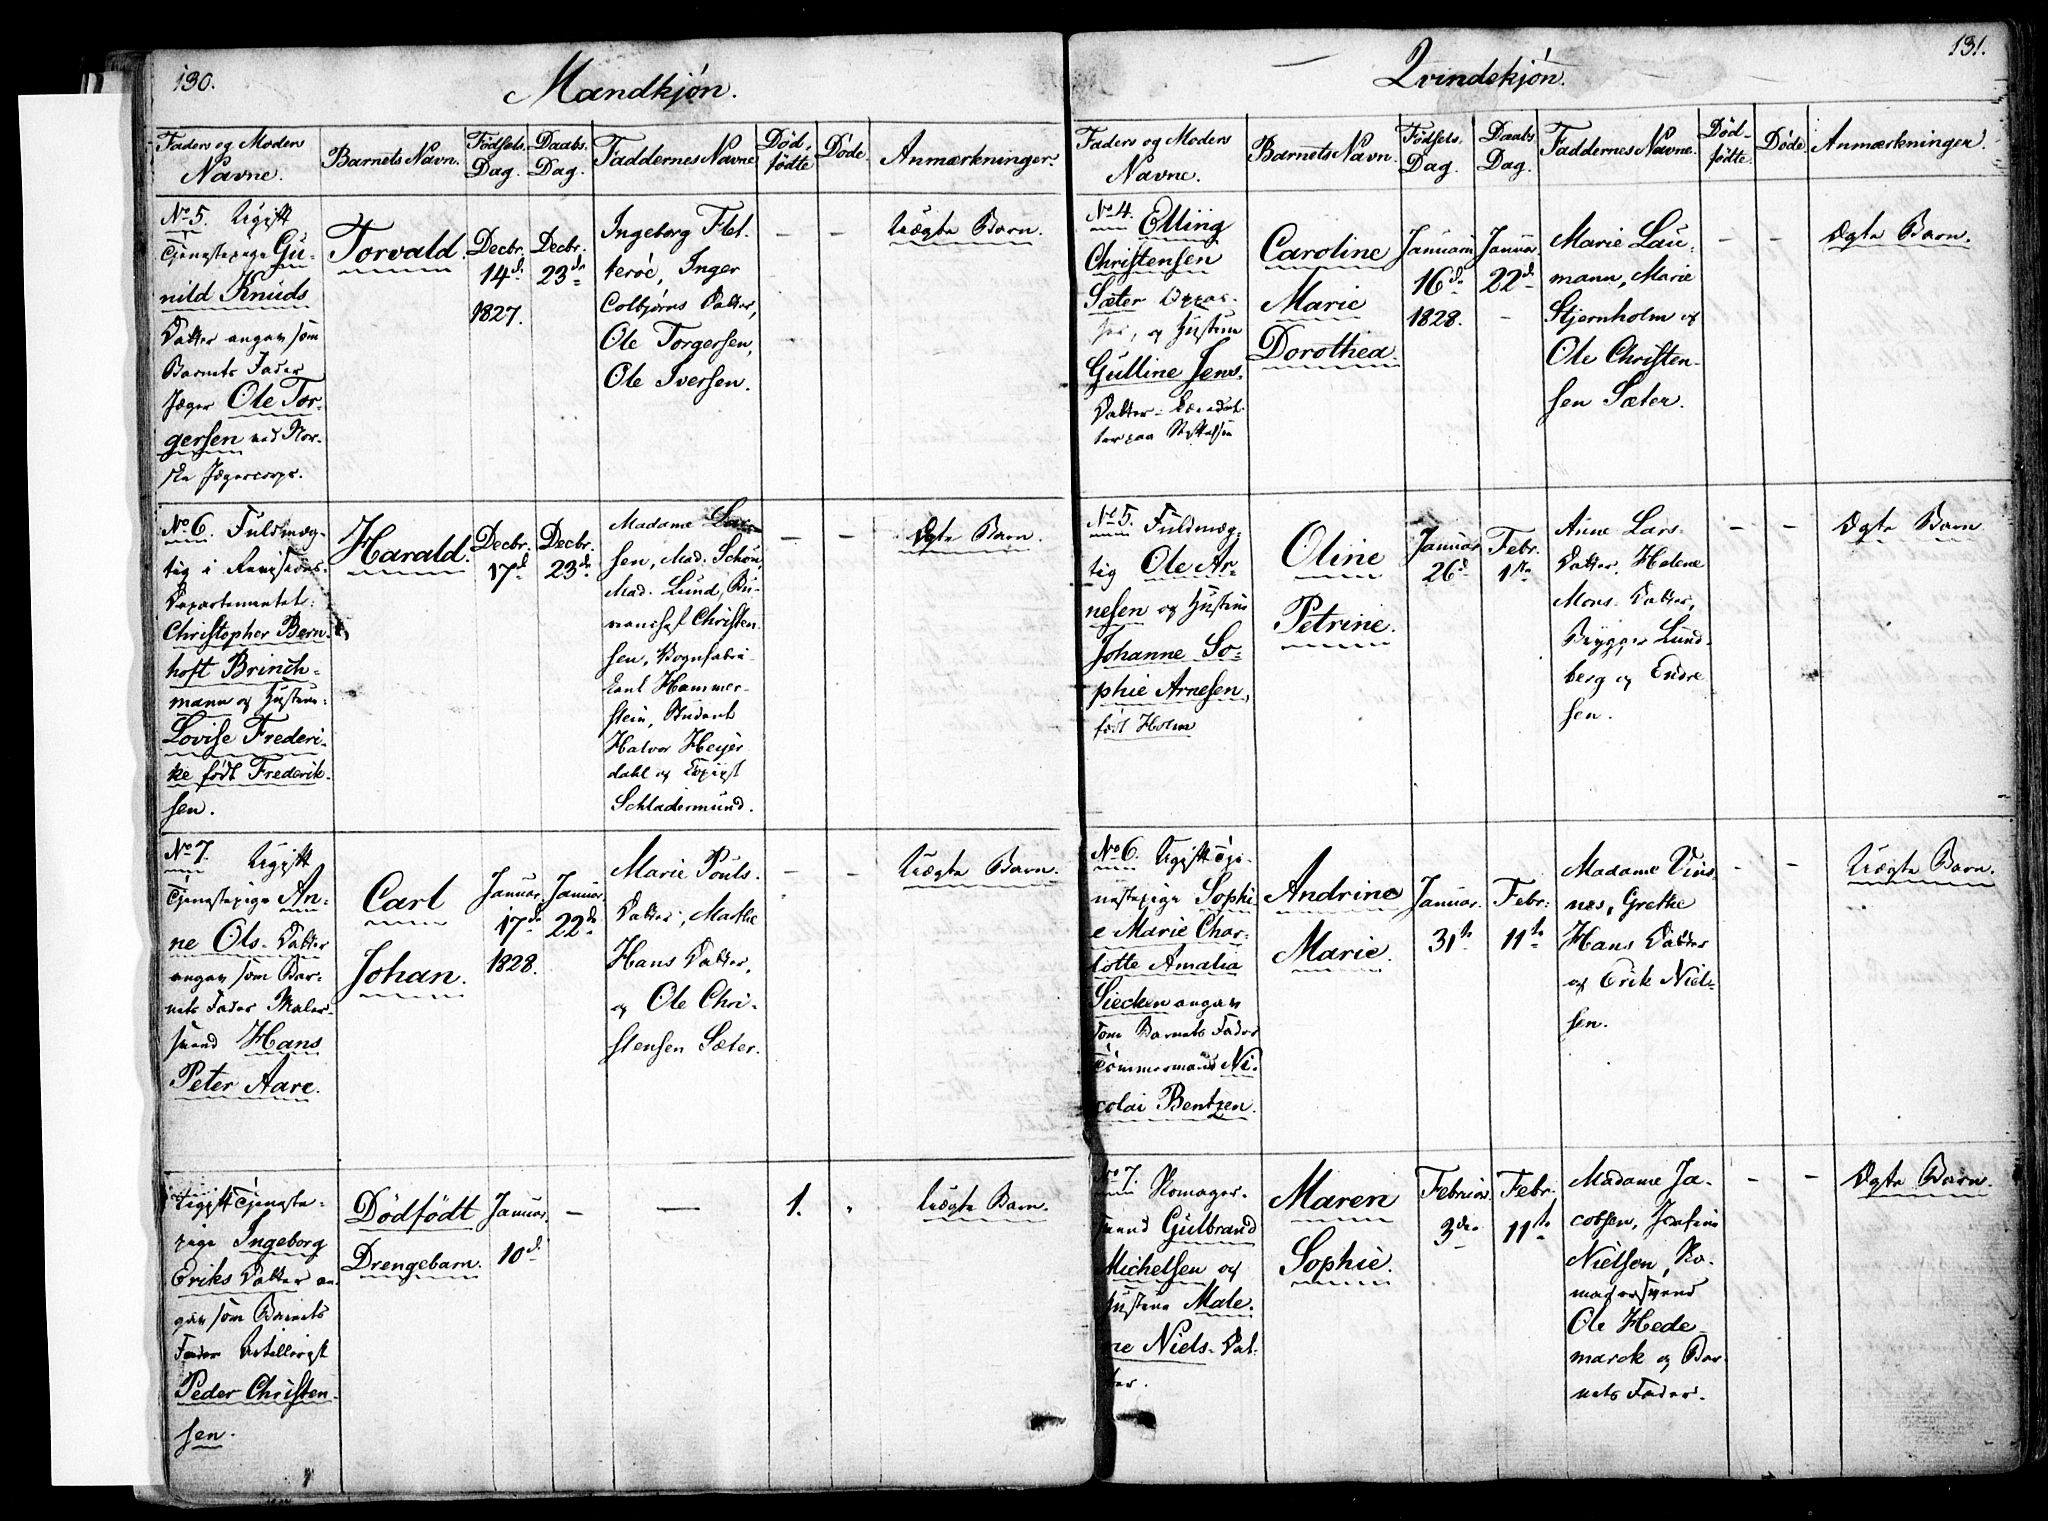 130.
Mandkjön.
Faders og Moders
Navne.
Barnets Navn.
Födsels
Dag.
Daabs
Dag.
Faddernes Navne
Död
födte
Döde.
Anmærkninger.
No 5. Ugift
Tjenestepige Gu-
nild Knuds
Datter angav som
Barnets Fader
Jæger Ole Tor-
gersen ved Nor-
ske Jægercorps.
Torvald.
Decbr.
14de
1827.
Decbr.
23de
Ingeborg Flet-
teröe, Inger
Colbjörns Datter,
Ole Torgersen,
Ole Iversen.
— —
Uægte Barn.
No 6. Fuldmæg-
tig i Revisions-
Departementet:
Christopher Bern-
hoft Brinch-
mann og Hustrue:
Lovise Frederi-
ke födt Frederik-
sen.
Harald.
Decbr.
17de
Decbr.
23de
Madame Lar-
sen, Mad. Schöu,
Mad. Lund,
Christen-
sen, Vognfabri-
kant Hammer-
stein, Student
Halvor Heyer
dahl og Copist
Schladermund.
— —
Ægte Barn.
No 7. Ugift
Tjenestepige An-
ne Ols- Datter
angav som Bar-
nets Fader Maler-
svend Hans
Peter Aare.
Carl
Johan.
Januar.
17de
1828.
Januar.
22de
Marie Pouls-
Datter, Mathe
Hans Datter,
og Ole Chri-
stensen Sæter.
— —
Uægte Barn.
Ugift Tjeneste-
pige Ingeborg
Eriks Datter an-
gav som Barnets
Fader Artillerist
Peder Christen-
sen.
Dödfödt
Drengebarn.
Januar.
10de
— —
1.
Uægte Barn.
131.
Qvindekjön.
Faders og Moders
Navne.
Barnets Navn.
Födsels
Dag.
Daabs
Dag.
Faddernes Navne.
Död-
födte.
Döde.
Anmærkninger.
No 4. Elling
Christensen
Sæter Oppas-
ser, og Hustrue
Gulline Jens-
Datter
Caroline
Marie
Dorothea.
Januar
16de
1828.
Januar
22de
—
Marie Lau-
mann, Marie
Stjernholm og
Ole Christen-
sen Sæter.
— —
Ægte Barn.
No 5. Fuldmæg-
tig Ole Ar-
nesen og Hustrue
Johanne So-
phie Arnesen,
födt Holm
Oline
Petrine.
Januar
26de
Febr.
1ste
Anne Lars-
Datter, Helene
Mons- Datter,
Brygger Lund-
berg og Endre
sen.
— —
Ægte Barn
No 6. Ugift Tje-
nestepige Sophi-
e Marie Char-
lotte Amalia
Siecken angav
som Barnets Fader
Tömmermand Ni-
colai Bentzen.
Andrine
Marie.
Januar.
31te
Febr.
11te
Madame Vins-
nes, Grethe
Hans Datter
og Erik Niel-
sen.
— —
Uægte Barn.
No 7. Skomager-
svend Gulbrand
Michelsen og
Hustrue Male-
ne Niels- Dat-
ter.
Maren
Sophie.
Februar
3die
Febr.
11te
Madame Ja-
cobsen, Josefine
Nielsen, Sko-
magersvend
Ole Hede-
marck og Bar-
nets Fader.
— —
Ægte Barn.